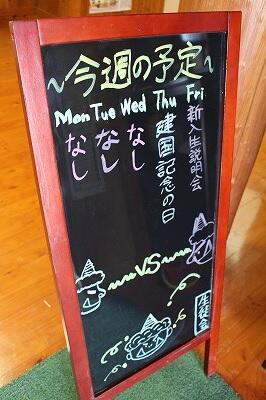 ~今週の予定~
Mon Tue Wed Thu Fri
なし
なし
なし
建国記念の日
新入生説明会
VS
生徒会